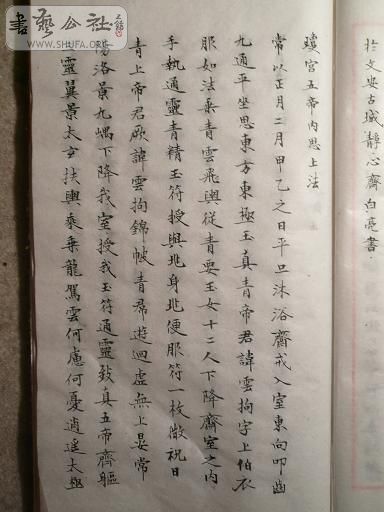 書藝公社
WWW.SHUFA.ORG
於文安古城靜心齋白亮書
瓊宮五帝內思上法
常以正月二月甲乙之日平旦沐浴齋戒入室東向叩齒
九通平坐思東方東極玉真青帝君諱雲拘字上伯衣
服如法乘青雲飛輿從青要玉女十二人下降齋室之內
手執通靈青精玉符授與兆身兆便服符一枚微祝曰
青上帝君厥諱雲拘錦帔青帬遊迴虛無上晏常
陽洛景九嵎下降我室授我玉符通靈致真五帝齊軀
靈翼景太玄扶輿乘龍駕雲何慮何憂逍遙太極